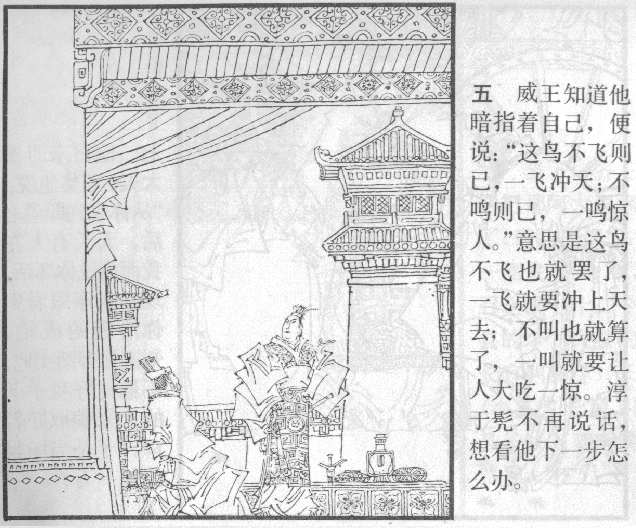 五　威王知道他
暗指着自己，便
说：“这鸟不飞则
已，一飞冲天；不
鸣则已，一鸣惊
人。”意思是这鸟
不飞也就罢了，
一飞就要冲上天
去；不叫也就算
了，一叫就要让
人大吃一惊。淳
于髡不再说话，
想看他下一步怎
么办。